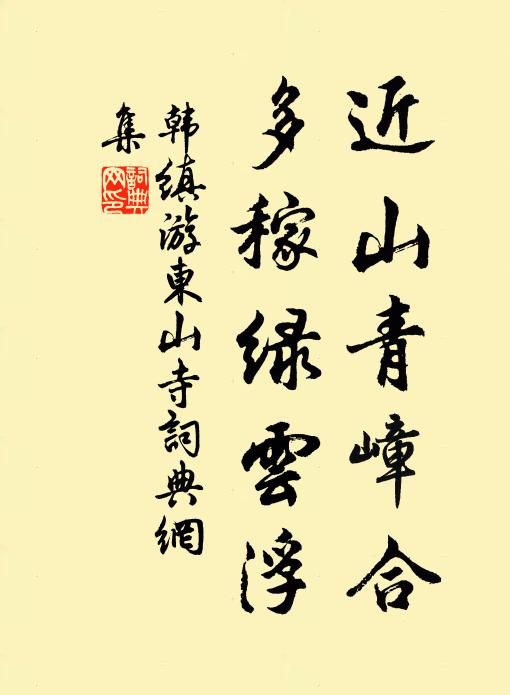 近山青嶂合
多稼緑雲浮
韩縝游東山寺詞典網
集
詞典
网印